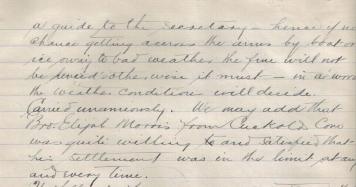 a guide to the secretary - hence if no
chance getting across the arms by boat or
ice owing to bad weather the fine will not
be forced otherwise it must - in a word
the weather condition will decide.
Carried unanimously. We may add that
Bro. Elijah Morris from Cuckold Cove
was quite willing to and satisfied that
his settlement was in the limit at any
and every time.